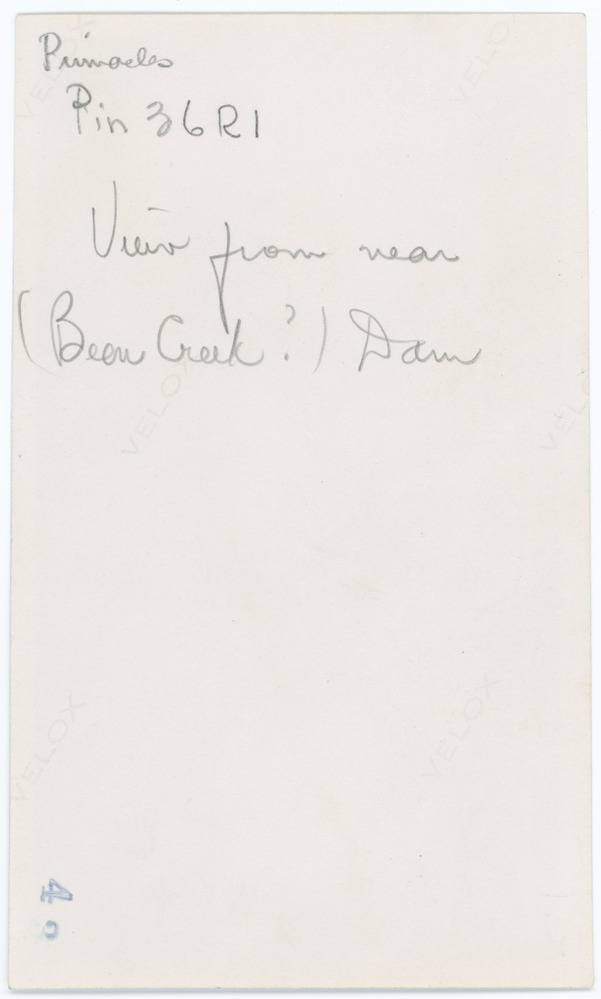 Pinnacles
Pin 36R1
View from near
(Bear Creek?) Dam
VELOX
VELOX
VELOX
VELOX
VELOX
VELOX
4